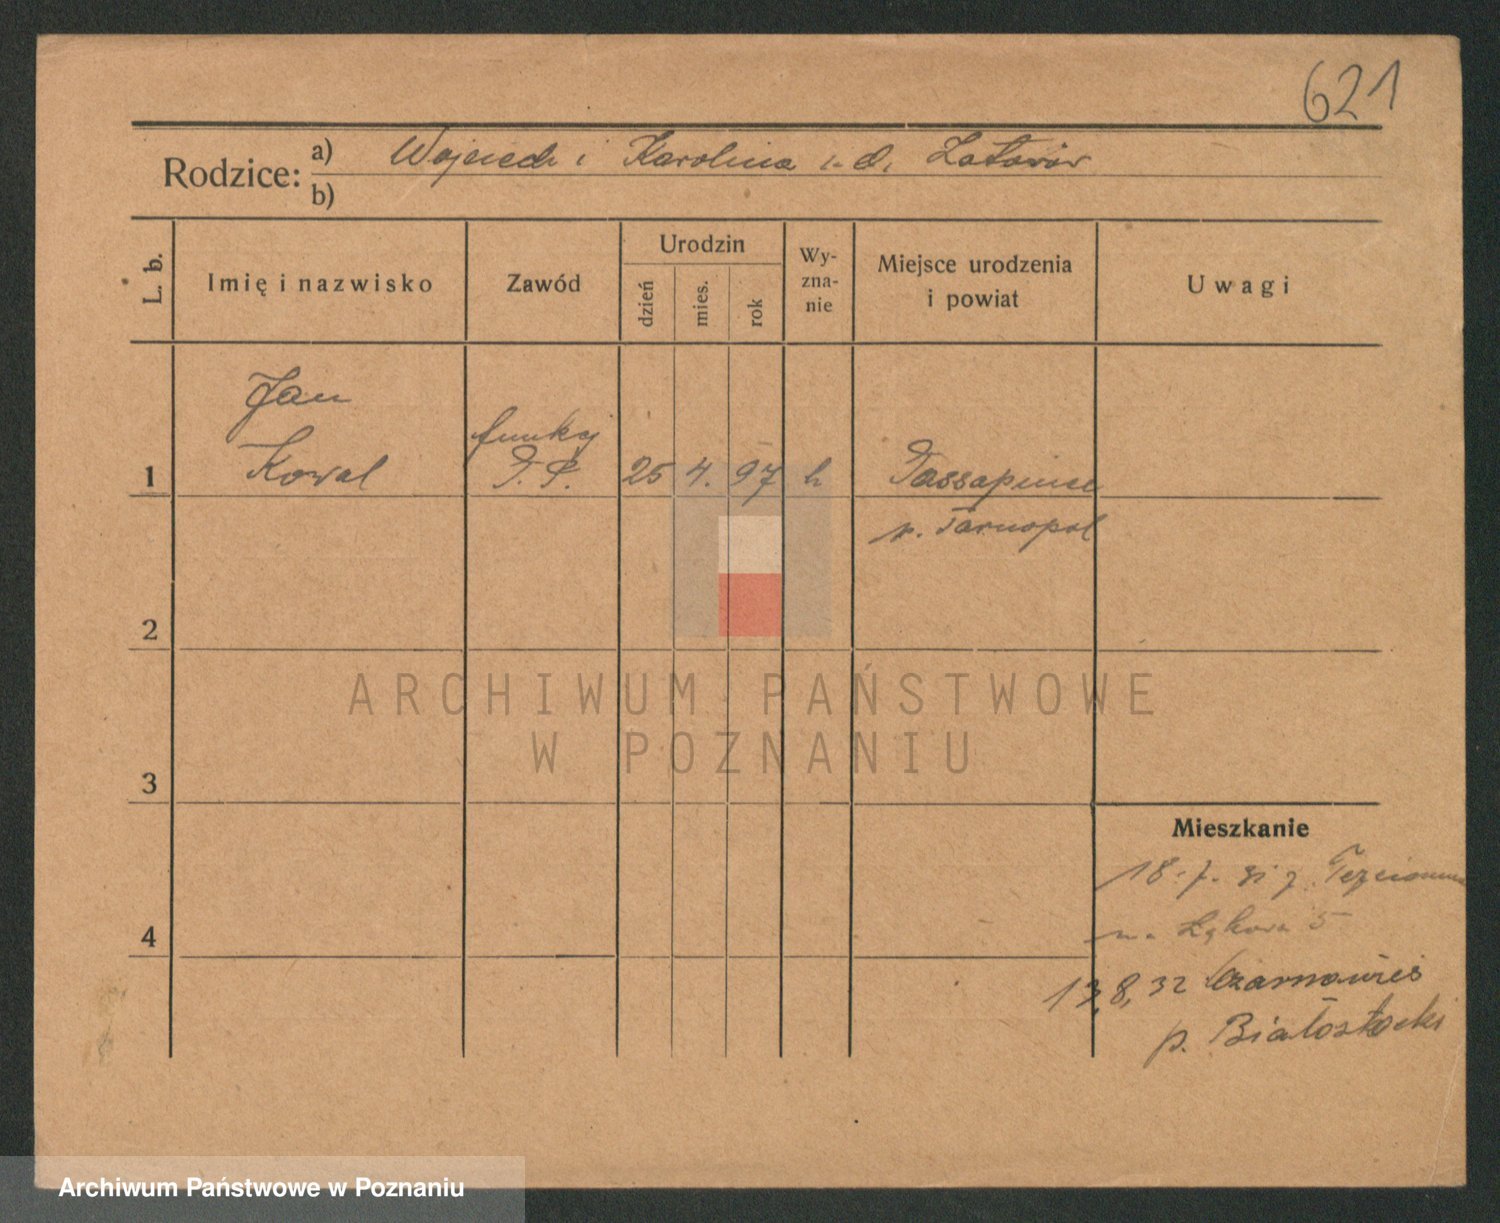 621
Rodzice: a) Wojciech i Karolina z d.
b)
L. b.
Imię i nazwisko
Zawód
Urodzin
dzień
mies.
rok
Wy-
zna-
nie
Miejsce urodzenia
i powiat
Uwagi
Jan
1 Kowal
funkcj
P. P.
25 4. 97
p. Tarnopol
2
ARCHIWUM PAŃSTWOWE
W POZNANIU
3
Mieszkanie
18. 7. 31 z
na Łąkowa 5
4
13,8,32 Czarnawieś
p. Białostocki
Archiwum Państwowe w Poznaniu